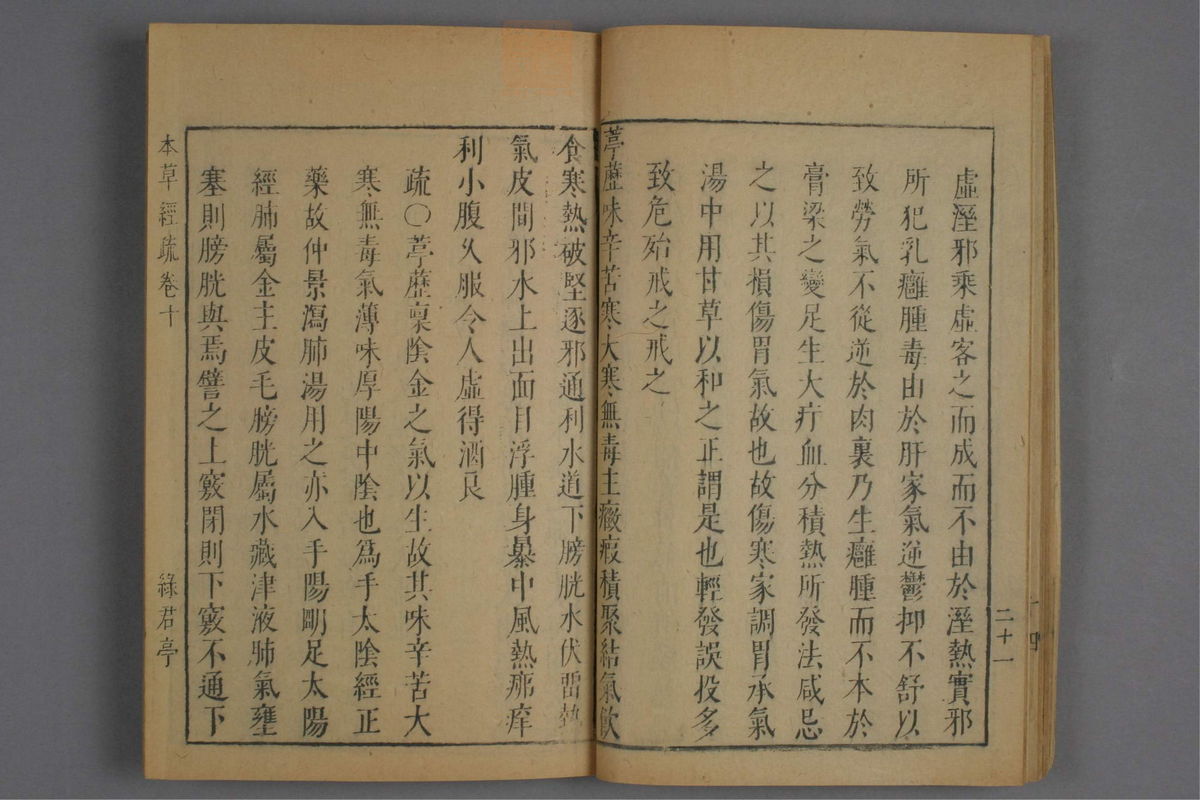 虛溼邪乘虛客之而成而不由於溼熱實邪
所犯乳癰腫毒由於肝家氣逆鬱抑不舒以
致勞氣不從逆於肉裏乃生癰腫而不本於
膏粱之變足生大疔血分積熱所發法咸忌
之以其損傷胃氣故也故傷寒家調胃承氣
湯中用甘草以和之正謂是也輕發誤投多
致危殆戒之戒之
二十一
葶藶味辛苦寒大寒無毒主癥瘕積聚結氣飲
食寒熱破堅逐邪通利水道下膀胱水伏留熱
氣皮間邪水上出面目浮腫身暴中風熱疿痒
利小腹久服令人虛得酒良
疏〇葶藶稟陰金之氣以生故其味辛苦大
寒無毒氣薄味厚陽中陰也爲手太陰經正
藥故仲景瀉肺湯用之亦入手陽明足太陽
經肺屬金主皮毛膀胱屬水藏津液肺氣壅
塞則膀胱與焉譬之上竅閉則下竅不通下
本草經疏卷十
綠君亭